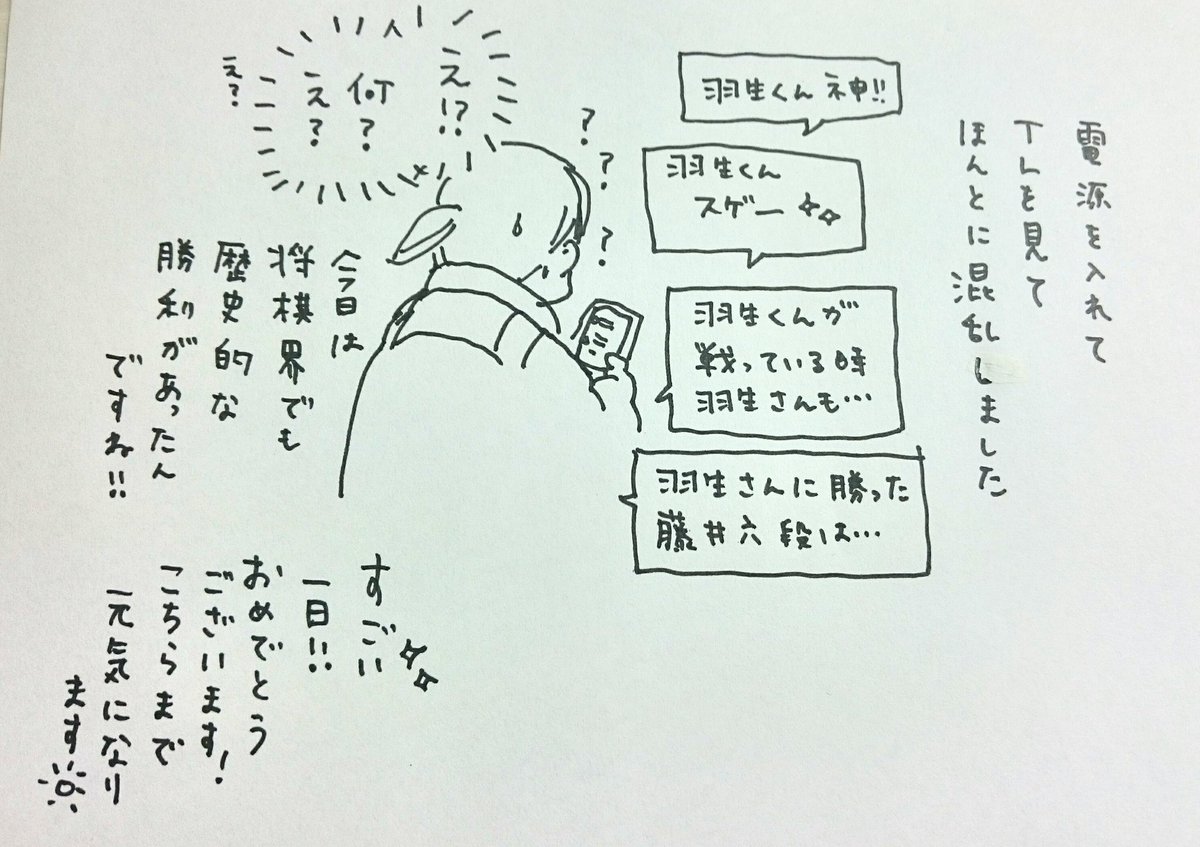 電源を入れて
TLを見て
ほんとに混乱しました
羽生くん神!!
羽生くん
スゲー
羽生くんが
戦っている時
羽生さんも…
羽生さんに勝った
藤井六段は…
?
?
?
え!?
何?
え?
え?
今日は
将棋界でも
歴史的な
勝利があったん
ですね!!
すごい
一日!!
おめでとう
ございます!
こちらまで
元気になり
ます